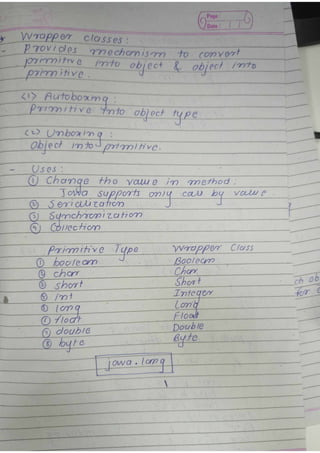 Page
Date
Wrapper classes:
- Provides mechanism to convert
primitive into object & object into
primitive.
(1) Autoboxing:
Primitive into object type
(2) Unboxing:
Object into primitive.
- Uses:
① Change the value in method:
Java supports only call by value
② Serialization
③ Synchronization
④ Collection
Primitive Type Wrapper Class
① boolean Boolean
② char Char
③ short Short
④ int Integer
⑤ long Long
⑥ float Float
⑦ double Double
⑧ byte Byte
java.lang
ch ob
for